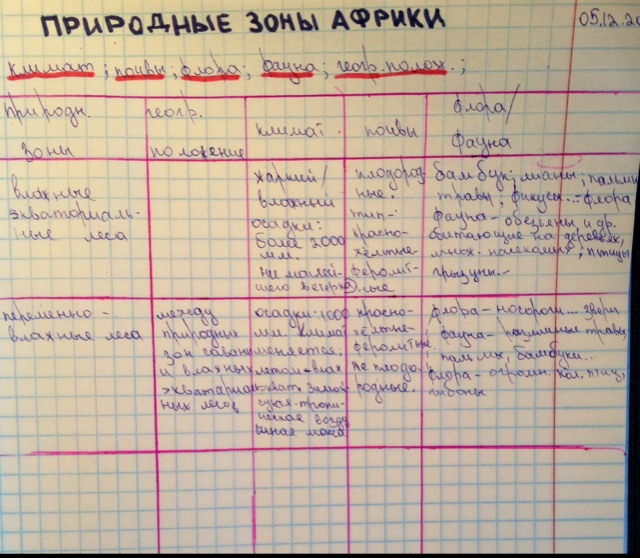 ПРИРОДНЫЕ ЗОНЫ АФРИКИ
05.12.20
климат; почвы; флора; фауна; геогр. полож.;
природн. зоны
геогр. положение
климат
почвы
флора/
фауна
влажные
экваториаль-
ные леса
жаркий/
влажный
осадки:
более 2000
мм.
ни малей-
шего ветерка
плодород
ные.
тип-:
красно-
жёлтые
фералит-
ные
бамбук; лианы; пальмы
травы; фикусы..-флора
фауна- обезьяны и др.
обитающие на деревьях,
множ. насекомых; птицы
грызуны..
переменно-
влажные леса
между
природн
зон саванн
и влажных
экватариаль
ных лесов
осадки: 1000
мм. климат
меняется:
летом-влаж
зимой
сухая-тропи-
ческая возду
шная масса
красно-
жёлтые-
фералитные
не плодо
родные.
флора- носороги... звери
фауна- различные травы,
пальмы, бамбуки...
флора- огромн. кол. птиц,